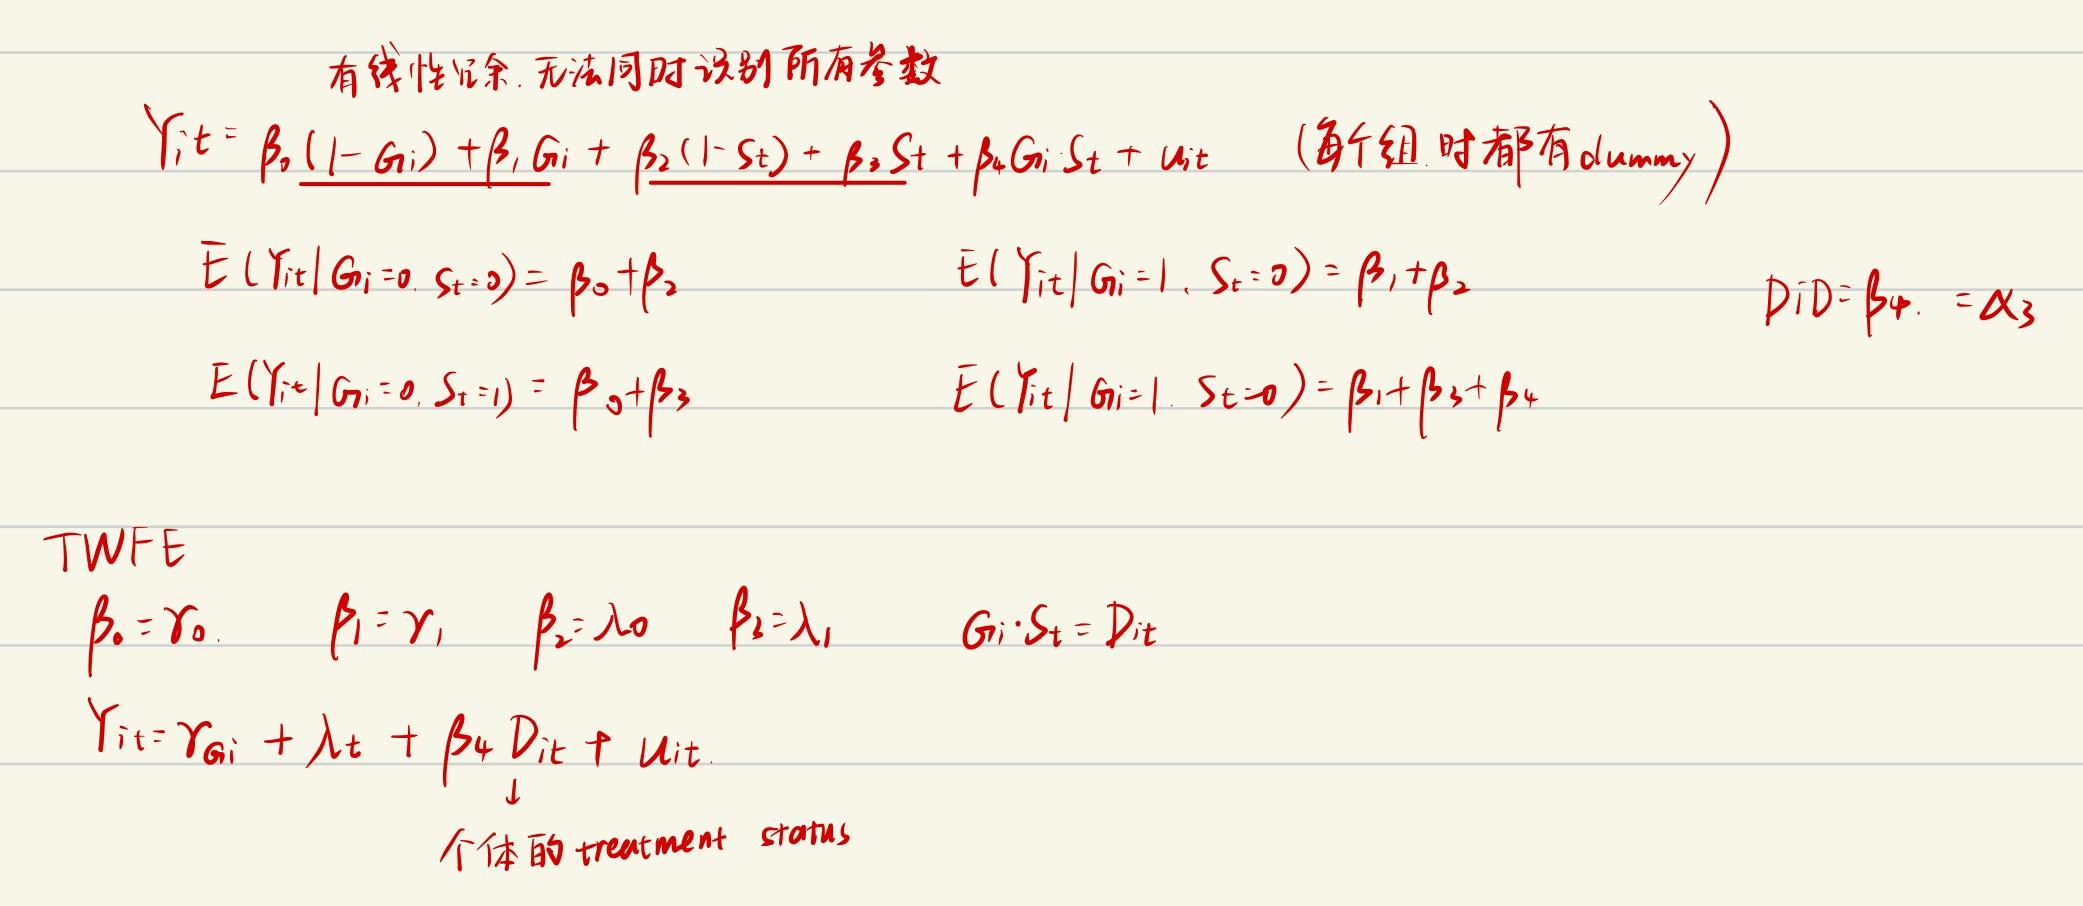 有线性冗余.无法同时识别所有参数
Yit = β0(1-Gi) + β1Gi + β2(1-St) + β3St + β4Gi·St + uit (每个组.时都有dummy)
E(Yit|Gi=0.St=0) = β0+β2 E(Yit|Gi=1、St=0) = β1+β2
DiD=β4. =α3
E(Yit|Gi=0.St=1) = β0+β3 E(Yit|Gi=1.St=0) = β1+β3+β4
TWFE
β0=γ0. β1=γ1 β2=λ0 β3=λ1 Gi·St = Dit
Yit=γGi + λt + β4 Dit + uit.
↓
个体的treatment status